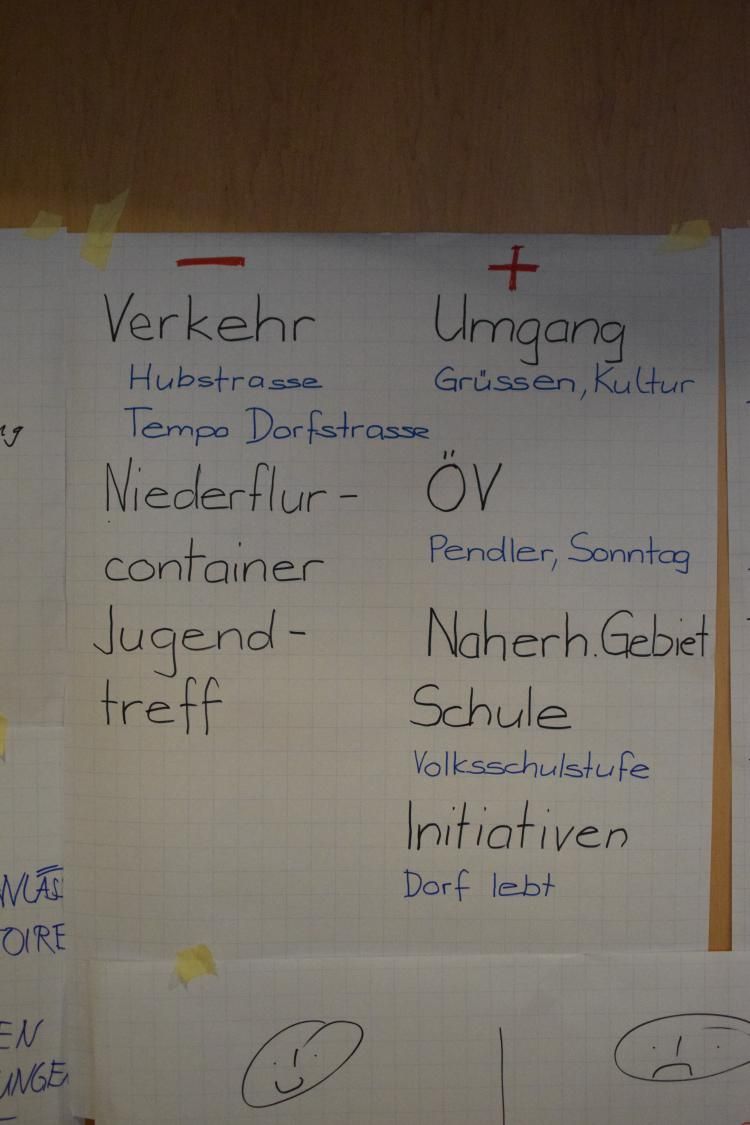 −
Verkehr
Hubstrasse
Tempo Dorfstrasse
Niederflur-
container
Jugend-
treff
+
Umgang
Grüssen, Kultur
ÖV
Pendler, Sonntag
Naherh. Gebiet
Schule
Volksschulstufe
Initiativen
Dorf lebt